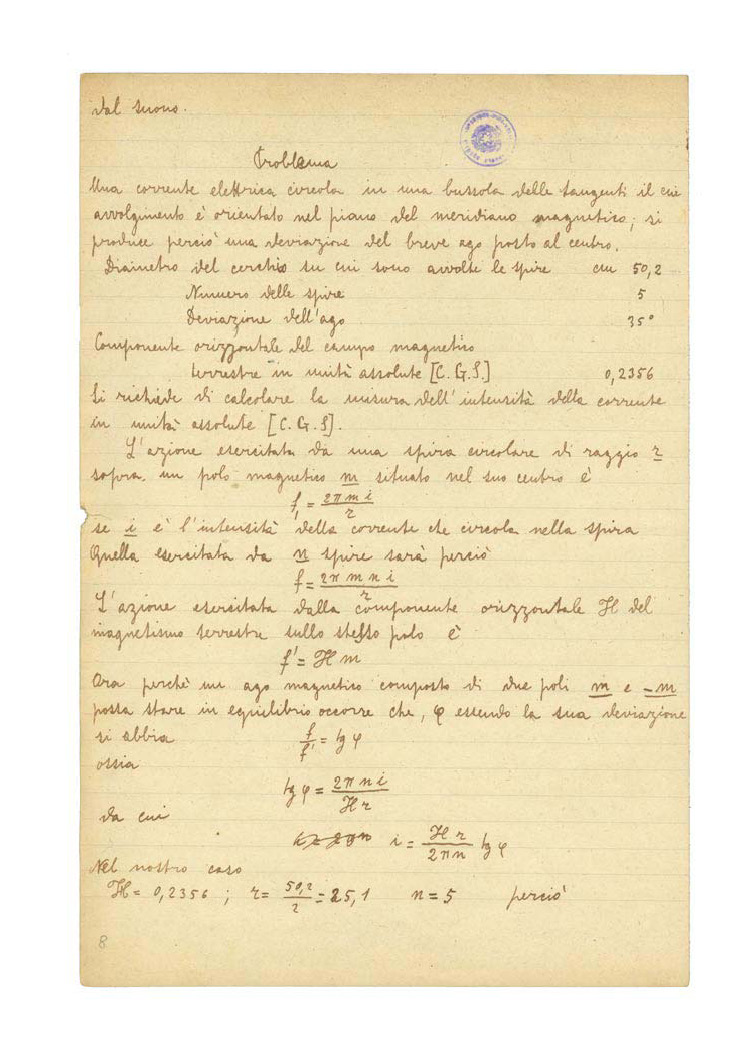 dal suono.
Problema
Una corrente elettrica circola in una bussola delle tangenti il cui
avvolgimento è orientato nel piano del meridiano magnetico; si
produce perciò una deviazione del breve ago posto al centro.
Diametro del cerchio su cui sono avvolte le spire cm 50,2
Numero delle spire 5
Deviazione dell'ago 35°
Componente orizzontale del campo magnetico
terrestre in unità assolute [C.G.S.] 0,2356
Si richiede di calcolare la misura dell'intensità della corrente
in unità assolute [C.G.S].
L'azione esercitata da una spira circolare di raggio r
sopra un polo magnetico m situato nel suo centro è
f₁ = 2π m i / r
se i è l'intensità della corrente che circola nella spira
Quella esercitata da n spire sarà perciò
f = 2π m n i / r
L'azione esercitata dalla componente orizzontale H del
magnetismo terrestre sullo stesso polo è
f' = H m
Ora perchè un ago magnetico composto di due poli m e -m
possa stare in equilibrio occorre che, φ essendo la sua deviazione
si abbia f / f' = tg φ
ossia
tg φ = 2π n i / H r
da cui
i = H r / 2π n tg φ
Nel nostro caso
H = 0,2356 ; r = 50,2 / 2 = 25,1 n = 5 perciò
8